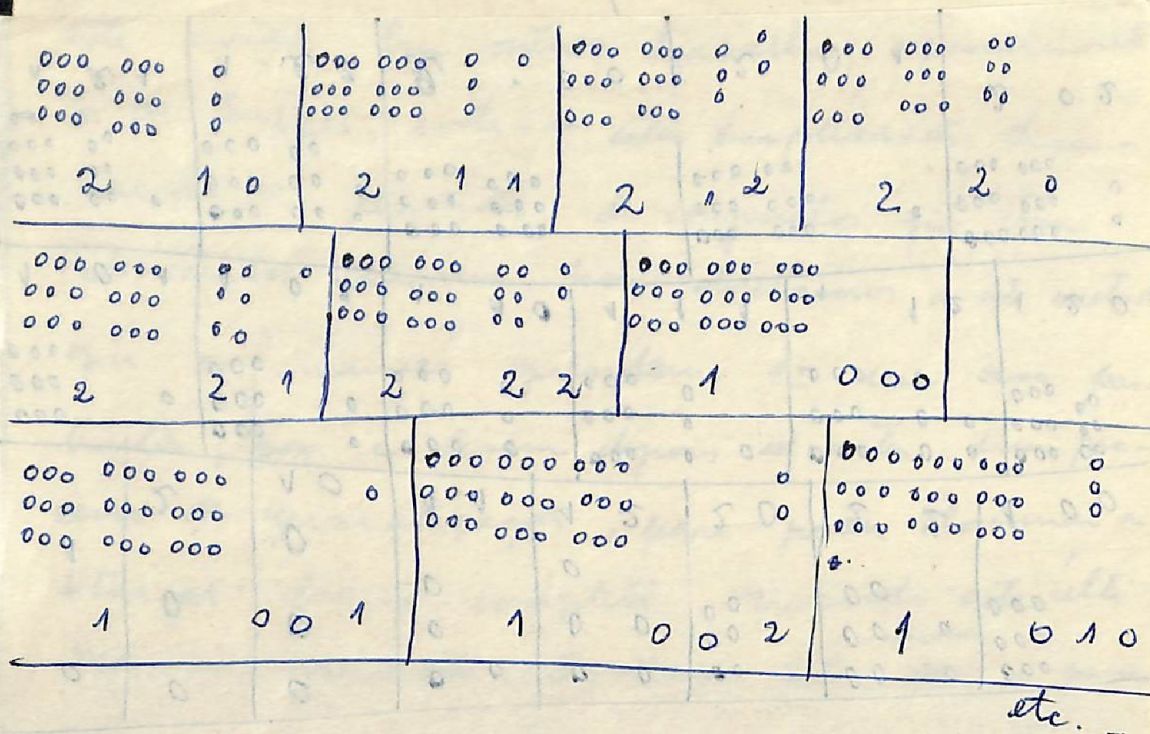 2 1 0 2 1 1 2 1 2 2 2 0
2 2 1 2 2 2 1 0 0 0
1 0 0 1 1 0 0 2 1 0 1 0
etc.